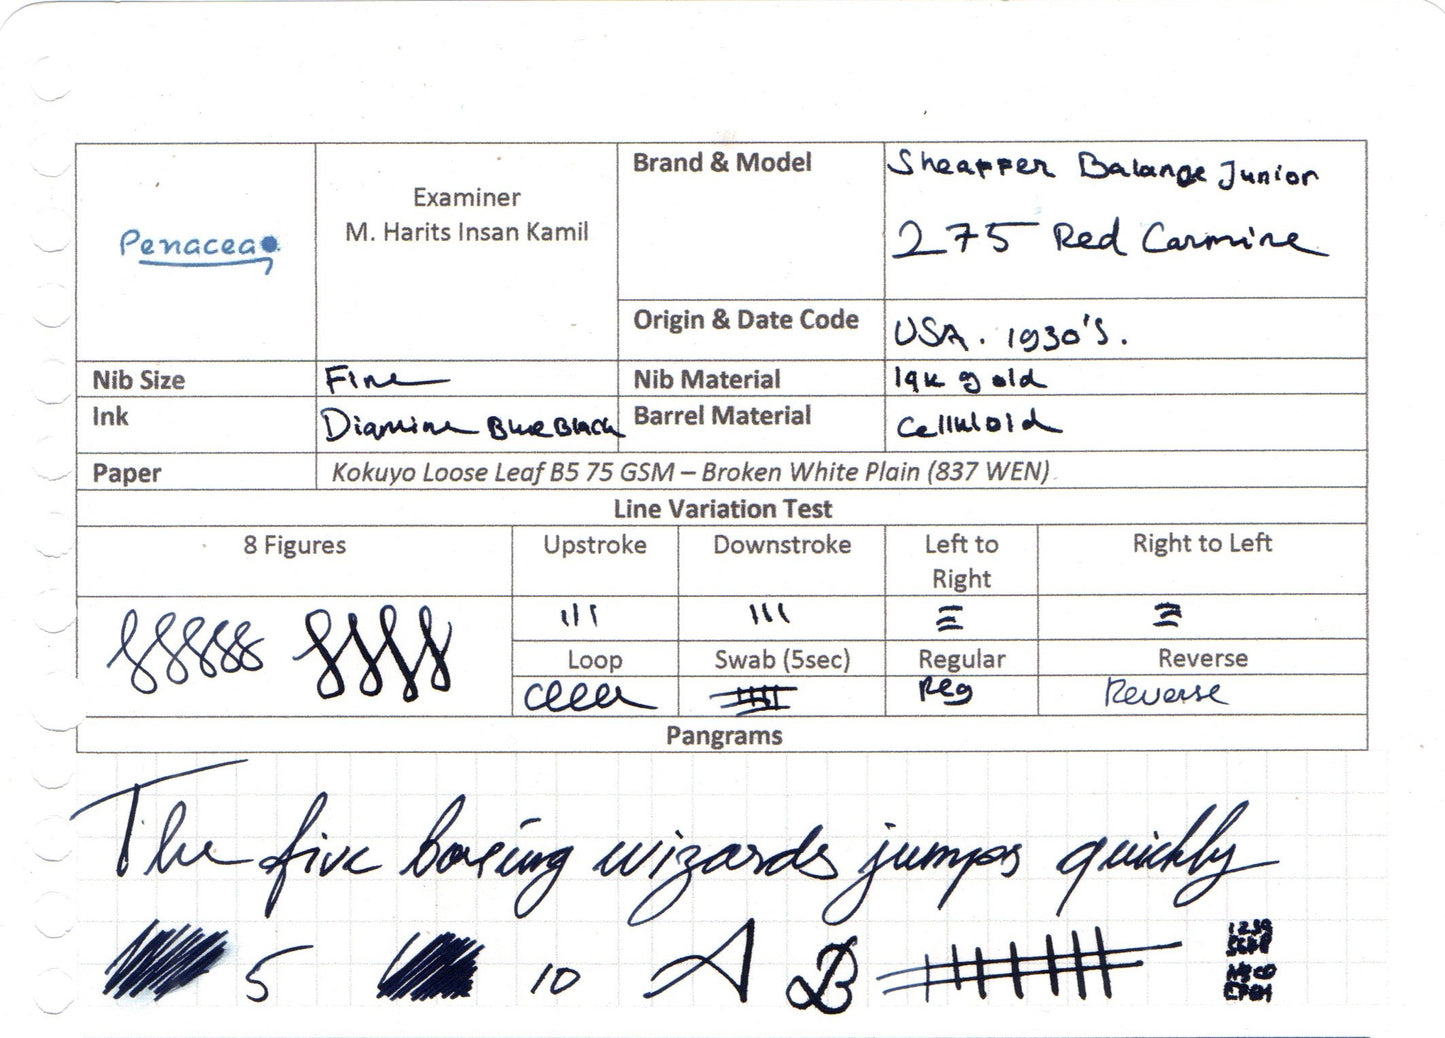 Penacea
Examiner
M. Harits Insan Kamil
Brand & Model
Sheaffer Balance Junior
275 Red Carmine
Origin & Date Code
USA. 1930's.
Nib Size
Fine
Nib Material
14k gold
Ink
Diamine Blue Black
Barrel Material
Celluloid
Paper
Kokuyo Loose Leaf B5 75 GSM – Broken White Plain (837 WEN)
Line Variation Test
8 Figures
Upstroke
Downstroke
Left to
Right
Right to Left
Loop
Swab (5sec)
Regular
Reverse
Reg
Reverse
Pangrams
The five boxing wizards jumps quickly
5
10
A
B
1234
5678